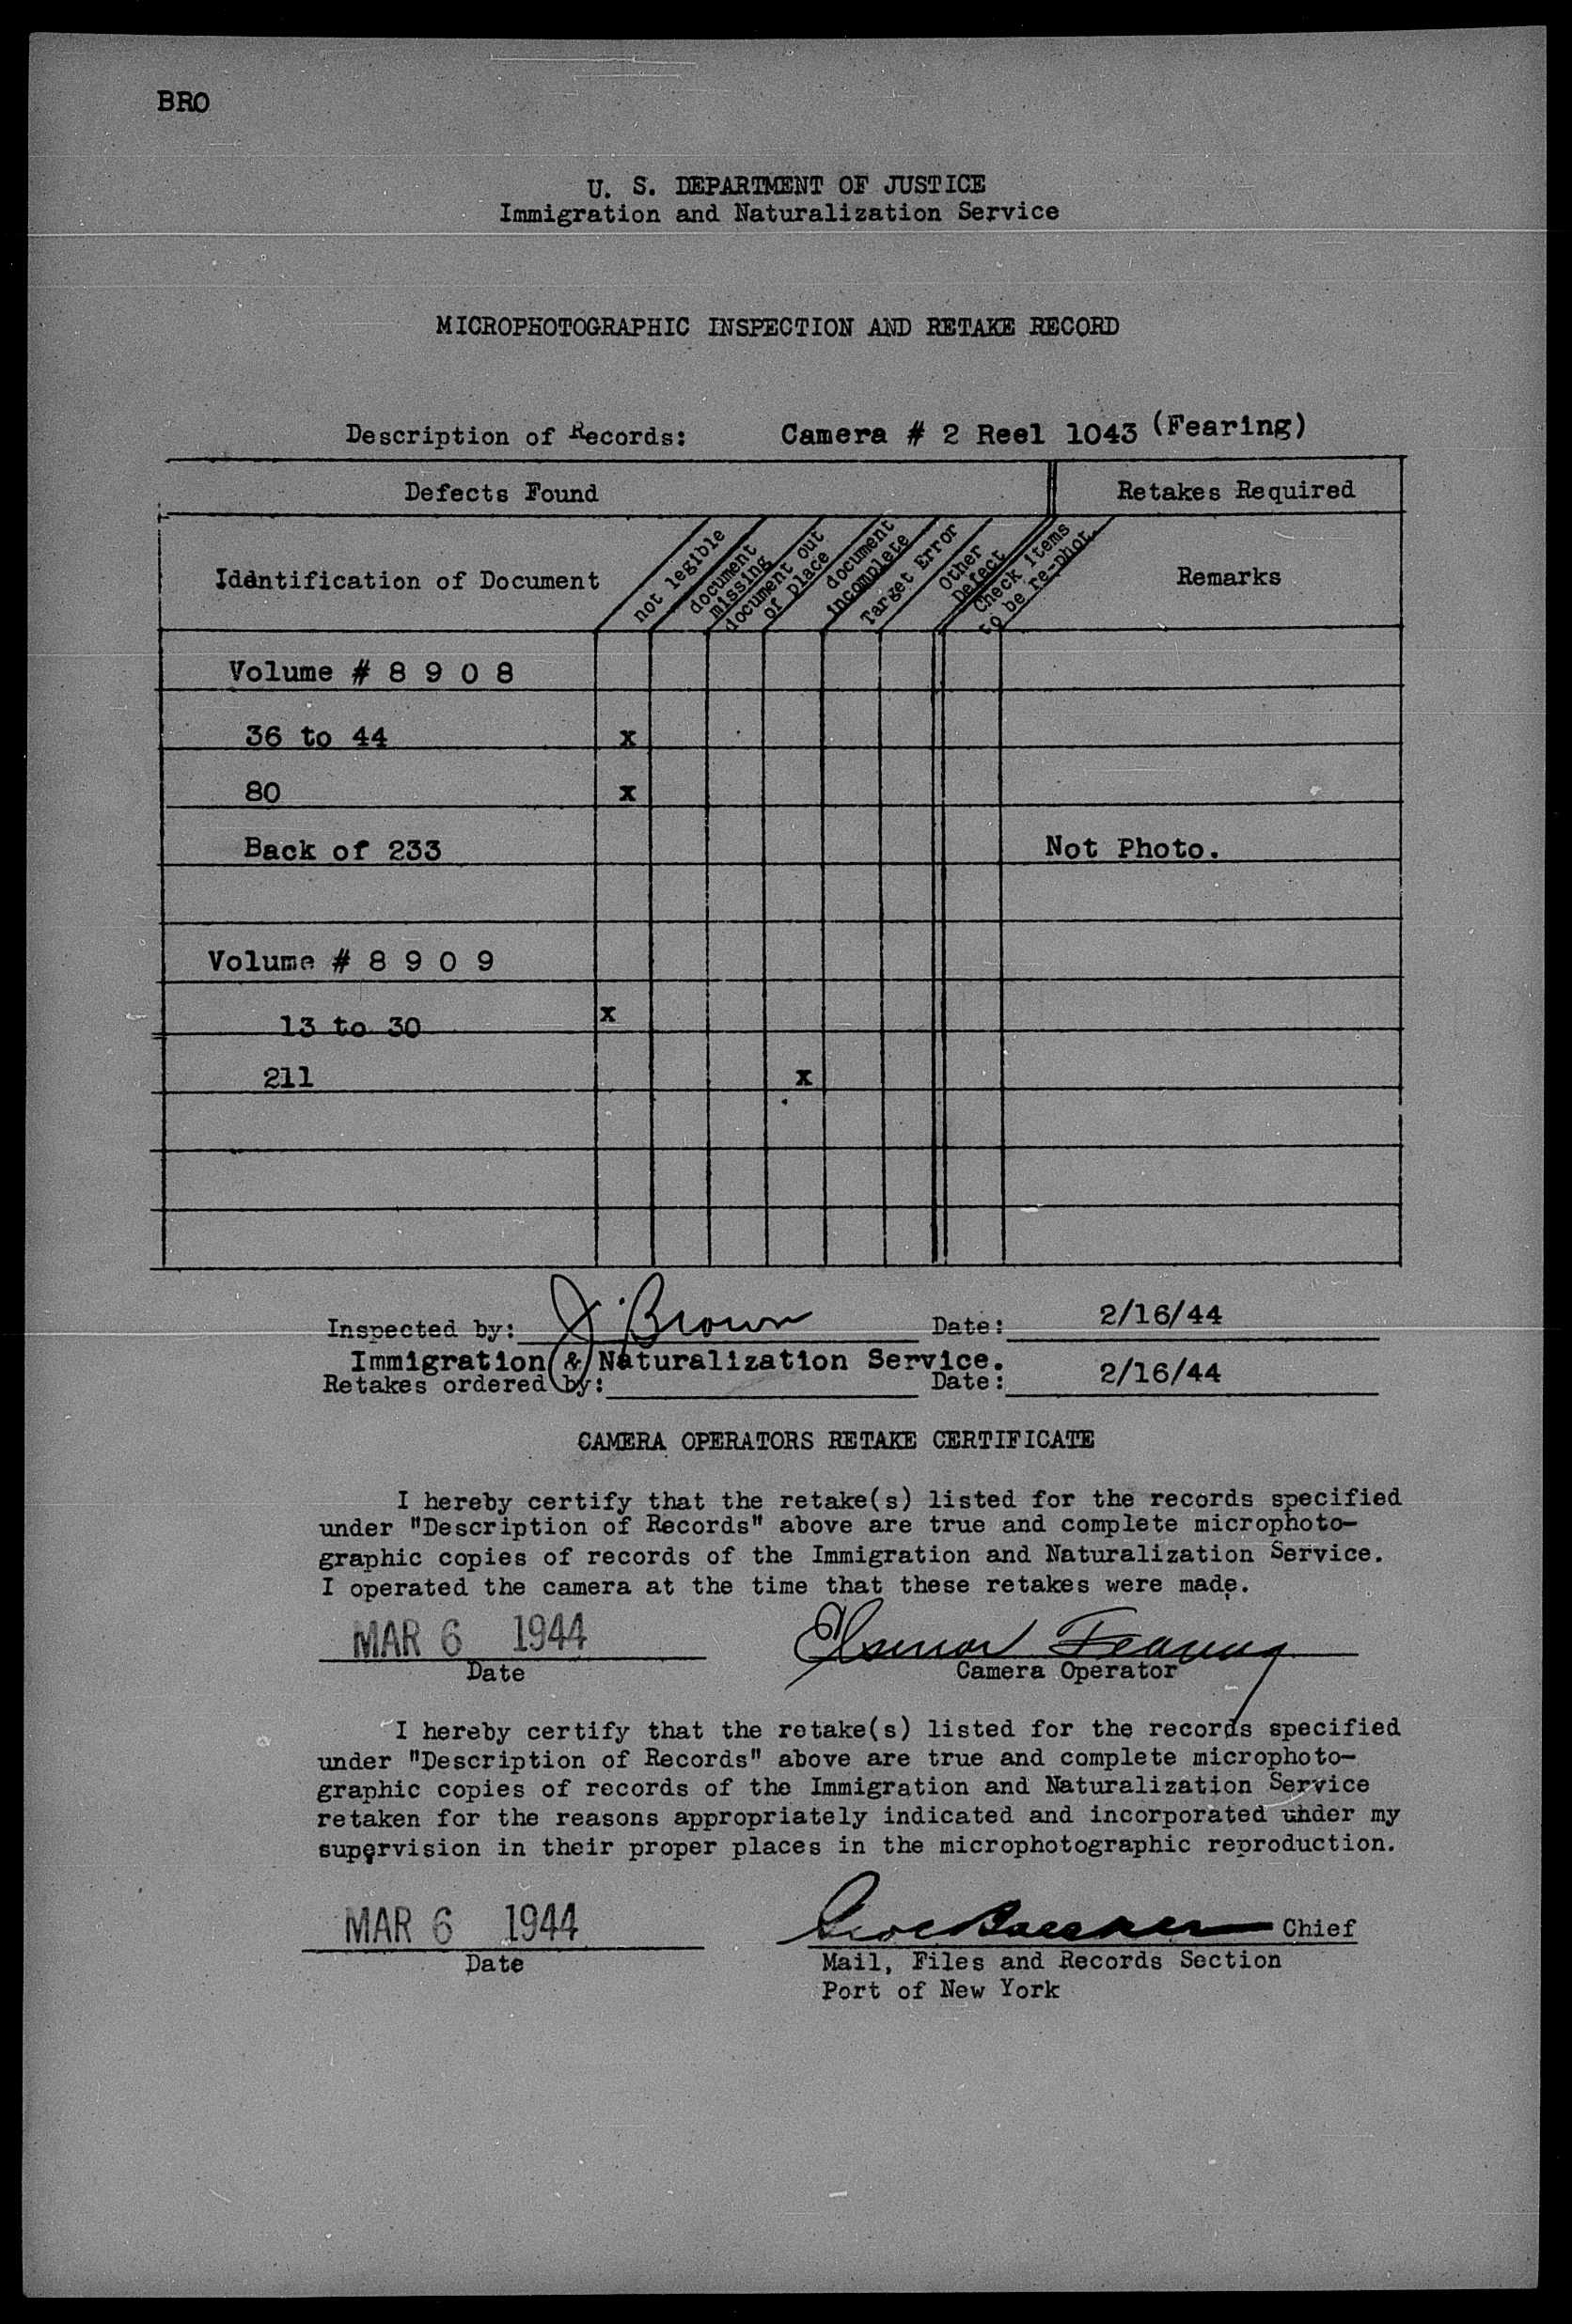 BRO
U. S. DEPARTMENT OF JUSTICE
Immigration and Naturalization Service
MICROPHOTOGRAPHIC INSPECTION AND RETAKE RECORD
Description of Records: Camera # 2 Reel 1043 (Fearing)
Defects Found Retakes Required
Identification of Document
not legible
document missing
document out of place
document incomplete
Target Error
Other Defect
Check items to be re-phot.
Remarks
Volume # 8 9 0 8
36 to 44 x
80 x
Back of 233 Not Photo.
Volume # 8 9 0 9
13 to 30 x
211 x
Inspected by: J. Brown Date: 2/16/44
Immigration & Naturalization Service.
Retakes ordered by: Date: 2/16/44
CAMERA OPERATORS RETAKE CERTIFICATE
I hereby certify that the retake(s) listed for the records specified
under "Description of Records" above are true and complete microphoto-
graphic copies of records of the Immigration and Naturalization Service.
I operated the camera at the time that these retakes were made.
MAR 6 1944 Eleanor Fearing
Date Camera Operator
I hereby certify that the retake(s) listed for the records specified
under "Description of Records" above are true and complete microphoto-
graphic copies of records of the Immigration and Naturalization Service
retaken for the reasons appropriately indicated and incorporated under my
supervision in their proper places in the microphotographic reproduction.
MAR 6 1944 Chief
Date Mail, Files and Records Section
Port of New York